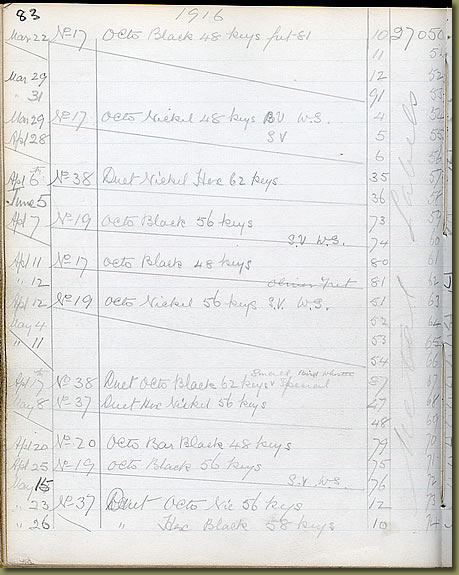 83 1916
Mar 22 No 17 Octo Black 48 keys fret 81 10 27050
11 51
Mar 29 12 52
" 31 91 53
Mar 29 No 17 Octo Nickel 48 keys S.V W.S. 4 54
Apl 28 S V 5 55
6 56
Apl 6th No 38 Duet Nickel Hex 62 keys 35 57
June 5 36 58
Apl 7 No 19 Octo Black 56 keys 73 59
S.V. W.S. 74 60
Apl 11 No 17 Octo Black 48 keys 80 61
" 12 81 62
Apl 12 No 19 Octo Nickel 56 keys S.V. W.S. 51 63
May 4 52 64
" 11 53 65
54 66
Small Bird Whistle
Apl 17th No 38 Duet Octo Black 62 keys Special 87 67
May 8 No 37 Duet Hex Nickel 56 keys 47 68
48 69
Apl 20 No 20 Octo Bar Black 48 keys 79 70
Apl 25 No 19 Octo Black 56 keys 75 71
May 15 S.V. W.S. 76 72
" 23 No 37 Duet Octo Nic 56 keys 12 73
" 26 " Hex Black 58 keys 10 74